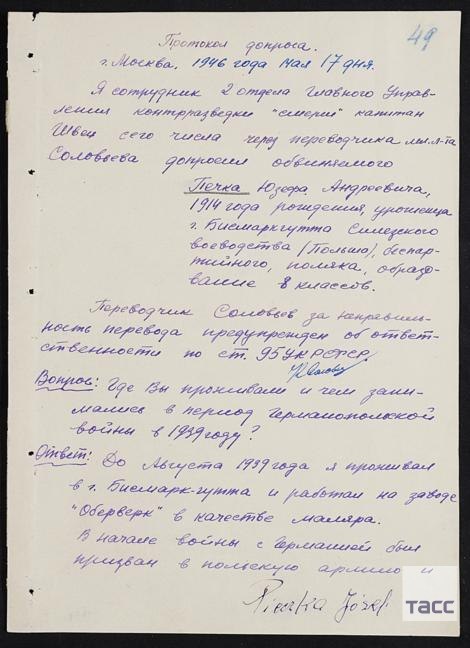 49
Протокол допроса.
г. Москва. 1946 года мая 17 дня.
Я сотрудник 2 отдела Главного Управ-
ления контрразведки "смерш" капитан
Швец сего числа через переводчика мл. л-та
Соловьева допросил обвиняемого
Печка Юзефа Андреевича,
1914 года рождения, уроженца
г. Бисмаркгутта Силезского
воеводства (Польша), беспар-
тийного, поляка, образо-
вание 8 классов.
Переводчик Соловьев за неправиль-
ность перевода предупрежден об ответ-
ственности по ст. 95 УК РСФСР.
Вопрос: Где Вы проживали и чем зани-
мались в период Германопольской
войны в 1939 году?
Ответ: До Августа 1939 года я проживал
в г. Бисмарк-гутта и работал на заводе
"Оберверк" в качестве маляра.
В начале войны с Германией был
призван в польскую армию и
Pieczka Józef
ТАСС